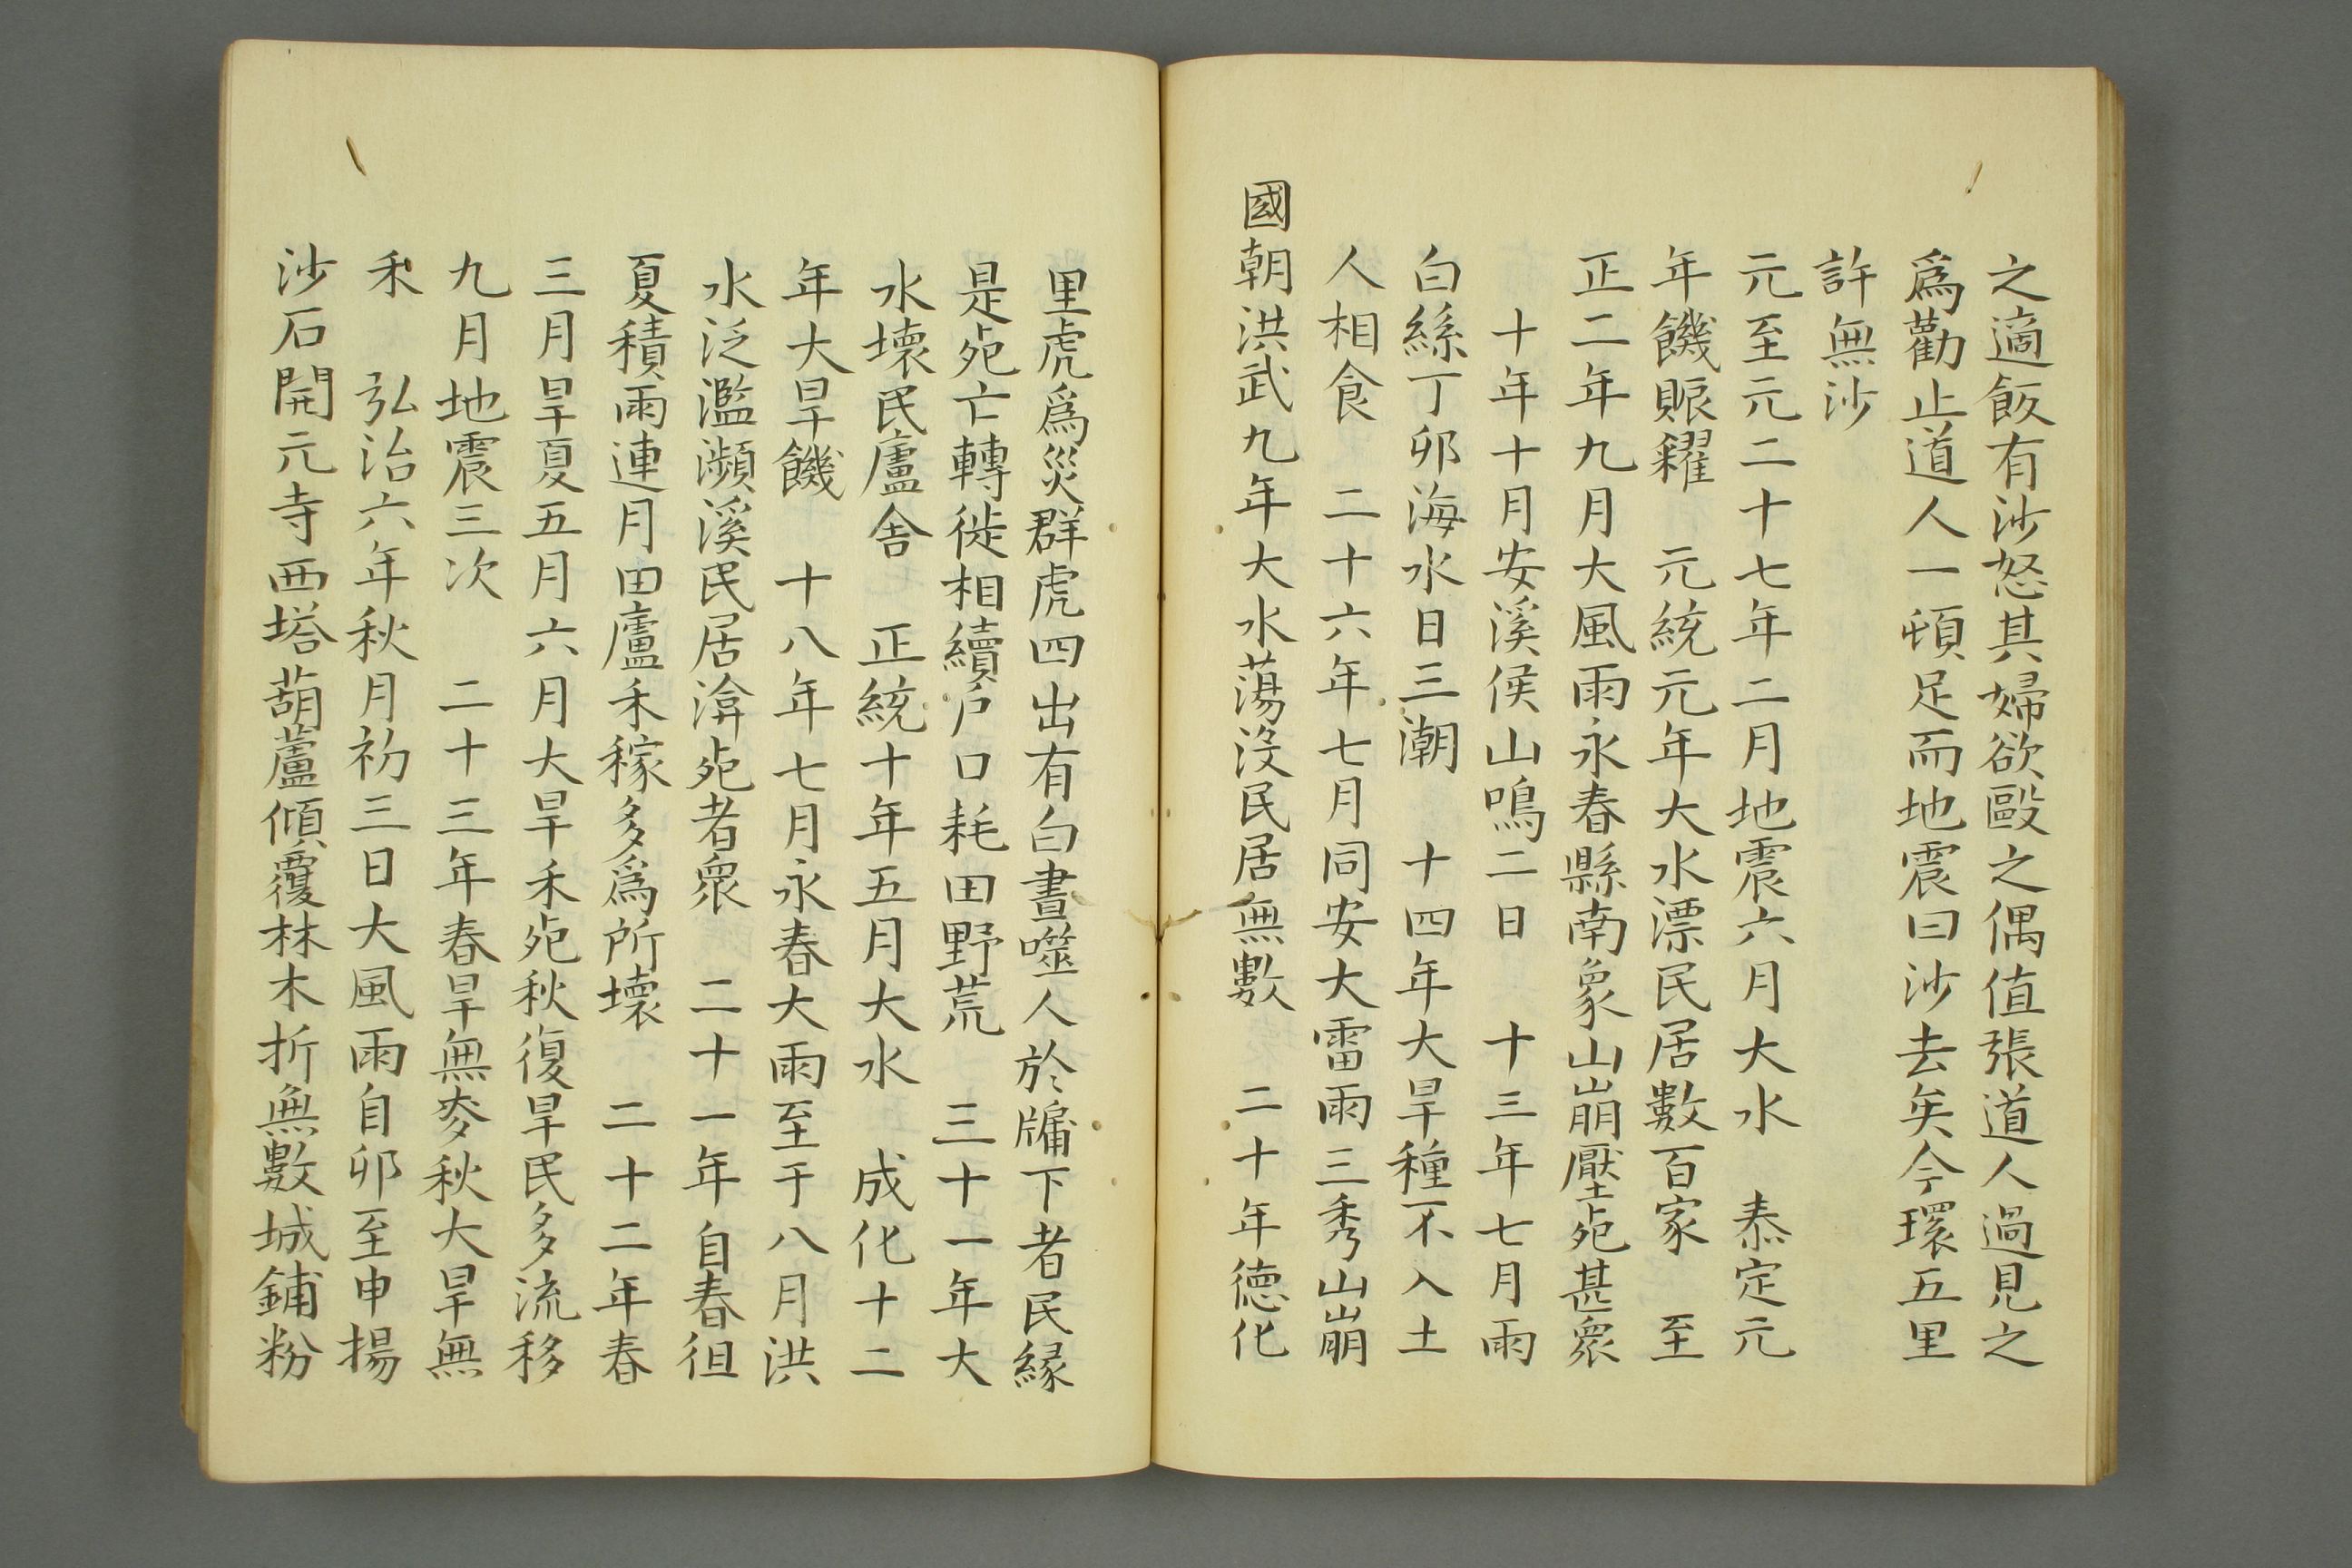 之適飯有沙怒其婦欲毆之偶值張道人過見之
爲勸止道人一頓足而地震曰沙去矣今環五里
許無沙
元至元二十七年二月地震六月大水　泰定元
年饑賑糶　元統元年大水漂民居數百家　至
正二年九月大風雨永春縣南象山崩壓死甚衆
十年十月安溪侯山鳴二日　十三年七月雨
白絲丁卯海水日三潮　十四年大旱種不入土
人相食　二十六年七月同安大雷雨三秀山崩
國朝洪武九年大水蕩没民居無數　二十年德化
里虎爲災群虎四出有白晝噬人於牖下者民緣
是死亡轉徙相續户口耗田野荒　三十一年大
水壞民廬舍　正統十年五月大水　成化十二
年大旱饑　十八年七月永春大雨至于八月洪
水泛濫瀕溪民居渰死者衆　二十一年自春徂
夏積雨連月田廬禾稼多爲所壞　二十二年春
三月旱夏五月六月大旱禾死秋復旱民多流移
九月地震三次　二十三年春旱無麥秋大旱無
禾　弘治六年秋月初三日大風雨自卯至申揚
沙石開元寺西塔葫蘆傾覆林木折無數城鋪粉